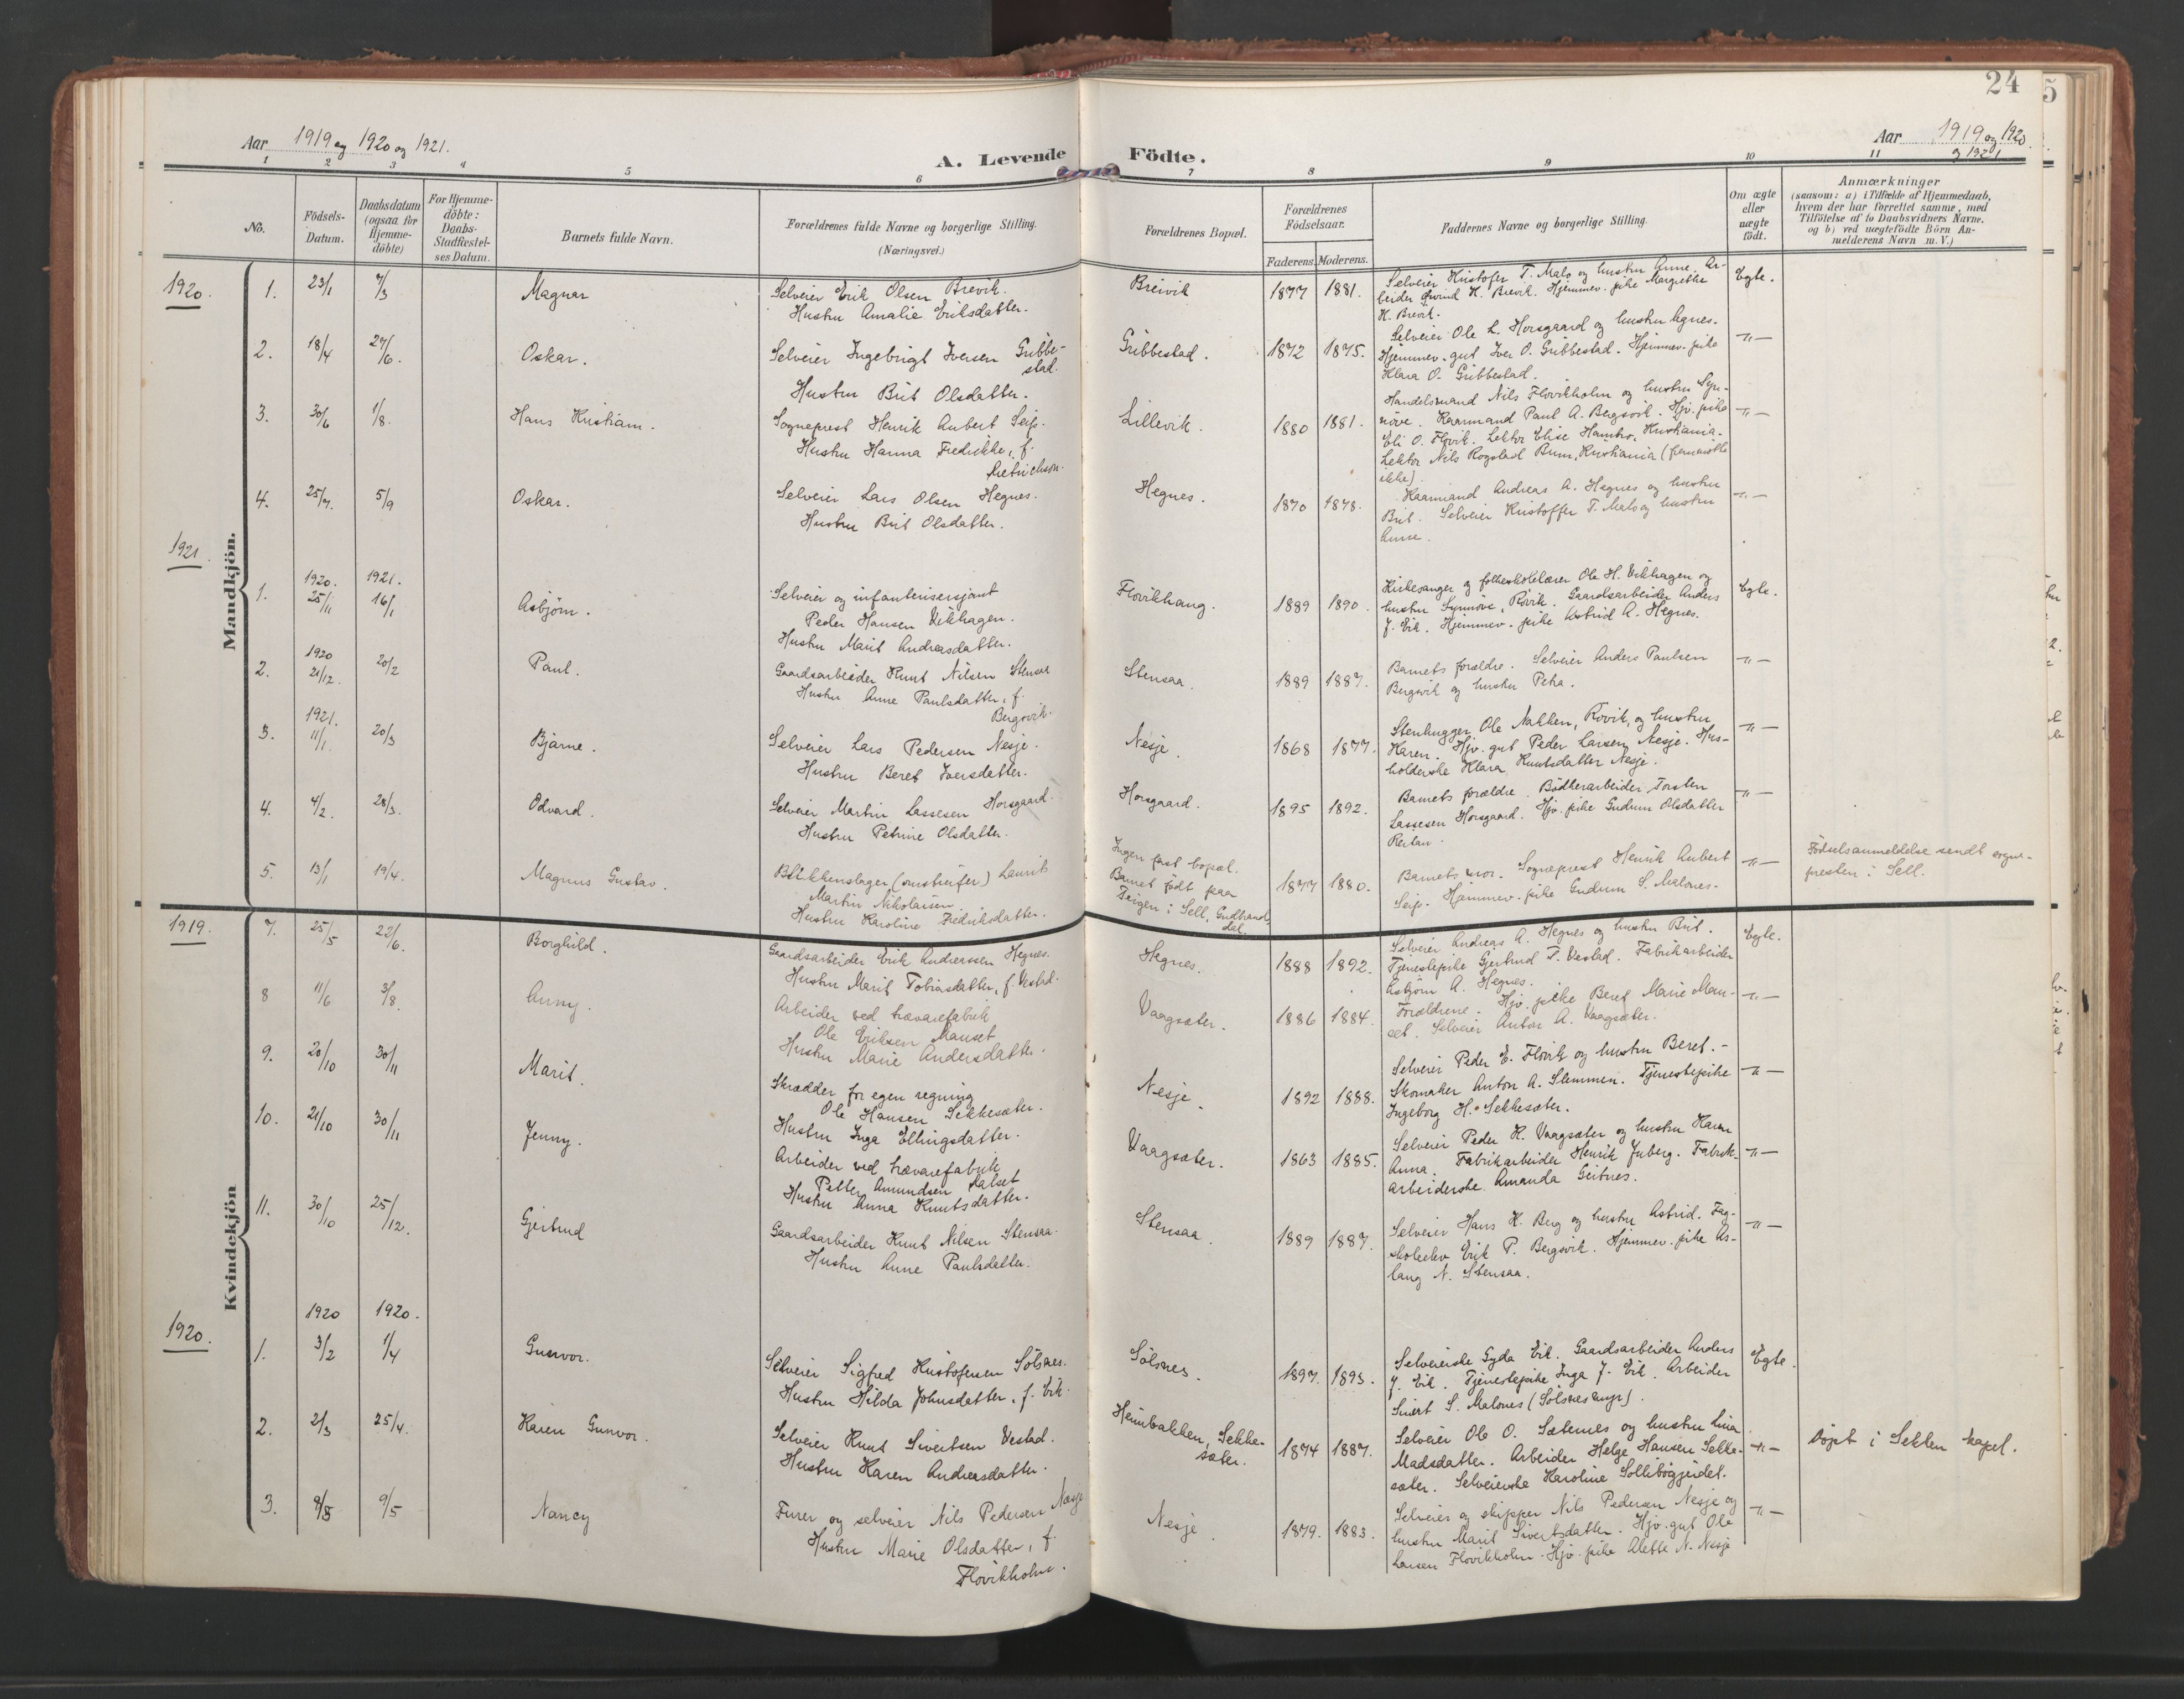 24
5
Aar 1919 og 1920 og 1921.
Aar 1919 og 1920
og 1921
A. Levende Födte.
1 2 3 4 5 6 7 8 9 10 11
No.
Födsels-
Datum.
Daabsdatum
(ogsaa for
Hjemme-
döbte)
For Hjemme-
döbte:
Daabs-
Stadfæstel-
ses Datum.
Barnets fulde Navn.
Forældrenes fulde Navne og borgerlige Stilling.
(Næringsvei.)
Forældrenes Bopæl.
Forældrenes
Födselsaar.
Faderens. Moderens.
Faddernes Navne og borgerlige Stilling.
Om ægte
eller
uægte
födt.
Anmærkninger
(saasom: a) i Tilfælde af Hjemmedaab,
hvem der har forrettet samme, med
Tilföielse af to Daabsvidners Navne,
og b) ved uægtefödte Börn An-
melderens Navn m. V.)
Mandkjön.
1920.
1. 23/1 7/3 Magnar
Selveier Erik Olsen Brevik.
Hustru Amalie Eriksdatter.
Breivik 1877 1881.
Selveier Kristofer T. Malo og hustru Anne. Ar-
beider Eivind K. Brevik. Hjemmev. pike Margrethe
K. Brevik.
Egte.
2. 18/4 27/6. Oskar.
Selveier Ingebrigt Iversen Gribbe-
stad.
Hustru Brit Olsdatter.
Gribbestad. 1872 1875.
Selveier Ole L. Horsgaard og hustru Agnes.
Hjemmev. gut Iver O. Gribbestad. Hjemmev. pike
Klara O. Gribbestad.
-"-
3. 30/6 1/8. Hans Kristian.
Sogneprest Henrik Aubert Seip.
Hustru Hanna Fredrikke, f.
Dietrichson.
Lillevik. 1880 1881.
Handelsmand Nils Flovikholm og hustru Syn-
növe. Kaarmand Paul A. Bergsvik. Hjv. pike
Eli O. Flovik. Lektor Elise Hambro, Kristiania.
Lektor Nils Rogstad Brun, Kristiania (fremmötte
ikke).
-"-
4. 25/7. 5/9 Oskar.
Selveier Lars Olsen Hegnes.
Hustru Brit Olsdatter.
Hegnes. 1870 1878.
Kaarmand Andreas A. Hegnes og hustru
Brit. Selveier Kristoffer T. Malo og hustru
Anne.
-"-
1921.
1920. 1921.
1. 25/11 16/1 Asbjörn.
Selveier og infanterisersjant
Peder Hansen Vikhagen.
Hustru Marit Andreasdatter.
Flovikhaug. 1889 1890.
Kirkesanger og folkeskolelærer Ole H. Vikhagen og
hustru Synnöve, Rövik. Gaardsarbeider Anders
J. Eik. Hjemmev. pike Astrid A. Hegnes.
Egte.
1920
2. 21/12. 20/2 Paul.
Gaardsarbeider Knut Nilsen Stensaa
Hustru Anne Paulsdatter, f.
Bergsvik.
Stensaa. 1889 1887.
Barnets forældre. Selveier Anders Paulsen
Bergsvik og hustru Petra.
-"-
1921.
3. 11/1. 20/3 Bjarne.
Selveier Lars Pedersen Nesje.
Hustru Beret Iversdatter.
Nesje. 1868 1877.
Stenhugger Ole Nakken, Rövik, og hustru
Karen. Hjv. gut Peder Larsen Nesje. Hus-
holderske Klara Knutsdatter Nesje.
-"-
4. 4/2. 28/3. Odvard.
Selveier Martin Lassesen Horsgaard.
Hustru Petrine Olsdatter.
Horsgaard. 1895 1892.
Barnets forældre. Bödkerarbeider Torsten
Lassesen Horsgaard. Hjv. pike Gudrun Olsdatter
Reitan.
-"-
5. 13/1 19/4. Magnus Gustav.
Blikkenslager (omstreifer) Laurits
Martin Nikolaisen
Hustru Karoline Fredriksdatter.
Ingen fast bopæl.
Barnet födt paa
i Sell, Gudbrands
dal.
1877 1880.
Barnets mor. Sogneprest Henrik Aubert
Seip. Hjemmev. pike Gudrun S. Malones.
-"-
Födselsanmeldelse sendt sogne-
presten i Sell.
Kvindekjön
1919.
7. 25/5 22/6. Borghild.
Gaardsarbeider Erik Andreassen Hegnes.
Hustru Marit Tobiasdatter, f. Vestad.
Hegnes. 1888 1892.
Selveier Andreas A. Hegnes og hustru Brit.
Tjenestepike Gjertrud T. Vestad. Fabrikarbeider
Asbjörn A. Hegnes.
Egte.
8 11/6 3/8. Anny.
Arbeider ved trævarefabrik
Ole Eriksen Manset
Hustru Marie Andersdatter.
Vaagsæter. 1886 1884.
Forældrene. Hjv. pike Beret Marie Man-
set. Selveier Anton A. Vaagsæter.
-"-
9. 20/10 30/11 Marit.
Skrædder for egen regning
Ole Hansen Sekkesæter.
Hustru Inga Ellingsdatter.
Nesje. 1892 1888.
Selveier Peder E. Flovik og hustru Beret.-
Skomaker Anton A. Slemmen. Tjenestepike
Ingeborg H. Sekkesæter.
-"-
10. 21/10 30/11 Jenny.
Arbeider ved trævarefabrik
Petter Amundsen Dalset
Hustru Anna Knutsdatter.
Vaagsæter. 1863 1885.
Selveier Peder K. Vaagsæter og hustru Karen
Anna. Fabrikarbeider Henrik Juberg. Fabrik-
arbeiderske Amanda Geitnes.
-"-
11. 30/10 25/12. Gjertrud
Gaardsarbeider Knut Nilsen Stensaa.
Hustru Anne Paulsdatter.
Stensaa. 1889 1887.
Selveier Hans K. Berg og hustru Astrid. Fag-
skoleelev Erik P. Bergsvik. Hjemmev. pike As-
laug N. Stensaa.
-"-
1920.
1920 1920.
1. 3/2 1/4 Gunvor.
Selveier Sigfred Kristofersen Sölsnes.
Hustru Hilda Johnsdatter, f. Eik.
Sölsnes. 1897. 1893.
Selveierske Gyda Eik. Gaardsarbeider Anders
J. Eik. Tjenestepike Inga J. Eik. Arbeider
Sivert S. Malones (Sölsnes ).
Egte.
2. 2/3 25/4. Karen Gunvor.
Selveier Knut Sivertsen Vestad.
Hustru Karen Andreasdatter.
Heimbakken, Sekke-
sæter.
1874 1887.
Selveier Ole O. Sæternes og hustru Lina
Madsdatter. Arbeider Helge Hansen Sekke-
sæter. Selveierske Karoline Sollibögjeidet.
-"-
Döpt i Sekken kapel.
3. 8/3 9/5 Nancy
Furer og selveier Nils Pedersen Nesje
Hustru Marie Olsdatter, f.
Flovikholm.
Nesje. 1879. 1883.
Selveier og skipper Nils Pedersen Nesje og
hustru Marit Sivertsdatter. Hjv. gut Ole
Larsen Flovikholm. Hjv. pike Alette N. Nesje
-"-